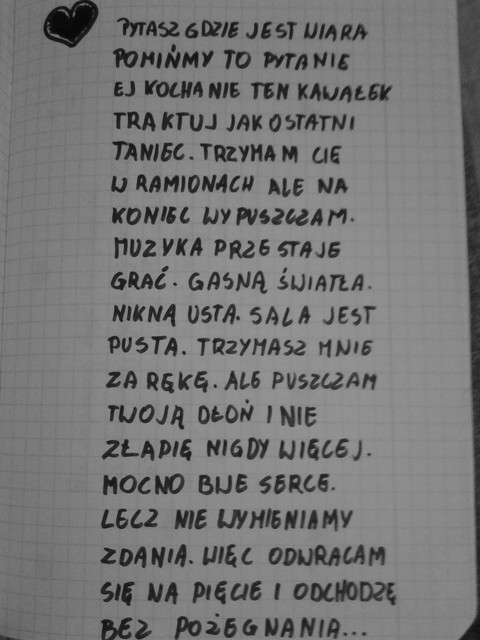 PYTASZ GDZIE JEST WIARA
POMIŃMY TO PYTANIE
EJ KOCHANIE TEN KAWAŁEK
TRAKTUJ JAK OSTATNI
TANIEC. TRZYMAM CIĘ
W RAMIONACH ALE NA
KONIEC WYPUSZCZAM.
MUZYKA PRZESTAJE
GRAĆ. GASNĄ ŚWIATŁA.
NIKNĄ USTA. SALA JEST
PUSTA. TRZYMASZ MNIE
ZA RĘKĘ. ALE PUSZCZAM
TWOJĄ DŁOŃ I NIE
ZŁAPIĘ NIGDY WIĘCEJ.
MOCNO BIJE SERCE.
LECZ NIE WYMIENIAMY
ZDANIA. WIĘC ODWRACAM
SIĘ NA PIĘCIE I ODCHODZĘ
BEZ POŻEGNANIA...